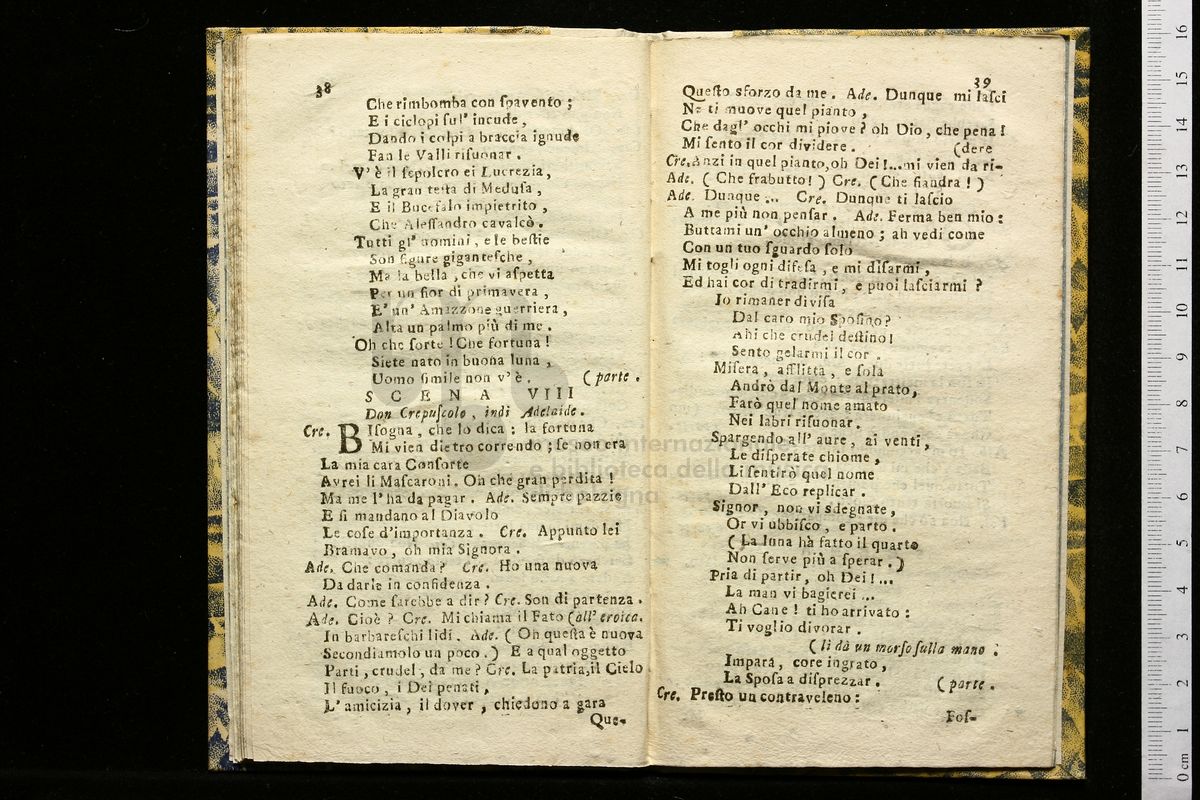 38
Che rimbomba con ſpavento ;
E i ciclopi ſul' incude ,
Dando i colpi a braccia ignude
Fan le Valli riſuonar .
V' è il ſepolcro ei Lucrezia ,
La gran teſta di Meduſa ,
E il Bucefalo impietrito ,
Che Aleſſandro cavalcò .
Tutti gl' uomini , e le beſtie
Son figure giganteſche ,
Ma la bella , che vi aſpetta
Per un fior di primavera ,
E' un' Amazzone guerriera ,
Alta un palmo più di me .
Oh che ſorte ! Che fortuna !
Siete nato in buona luna ,
Uomo ſimile non v' è . ( parte .
SCENA VIII
Don Crepuſcolo , indi Adelaide .
Cre. BIſogna , che lo dica : la fortuna
Mi vien dietro correndo ; ſe non era
La mia cara Conſorte
Avrei li Maſcaroni . Oh che gran perdita !
Ma me l' ha da pagar . Ade. Sempre pazzie
E ſi mandano al Diavolo
Le coſe d'importanza . Cre. Appunto lei
Bramavo , oh mia Signora .
Ade. Che comanda ? Cre. Ho una nuova
Da darle in confidenza .
Ade. Come ſarebbe a dir ? Cre. Son di partenza .
Ade. Cioè ? Cre. Mi chiama il Fato (all' eroica.
In barbareſchi lidi . Ade. ( Oh queſta è nuova
Secondiamolo un poco . ) E a qual oggetto
Parti , crudel , da me ? Cre. La patria,il Cielo
Il fuoco , i Dei penati ,
L' amicizia , il dover , chiedono a gara
Que-
39
Queſto sforzo da me . Ade. Dunque mi laſci
Ne ti muove quel pianto ,
Che dagl' occhi mi piove ? oh Dio , che pena !
Mi ſento il cor dividere . (dere
Cre. Anzi in quel pianto,oh Dei !...mi vien da ri-
Ade. ( Che frabutto ! ) Cre. ( Che fiandra ! )
Ade. Dunque ... Cre. Dunque ti laſcio
A me più non penſar . Ade. Ferma ben mio :
Buttami un' occhio almeno ; ah vedi come
Con un tuo ſguardo ſolo
Mi togli ogni difeſa , e mi diſarmi ,
Ed hai cor di tradirmi , e puoi laſciarmi ?
Io rimaner diviſa
Dal caro mio Spoſino ?
Ahi che crudel deſtino !
Sento gelarmi il cor .
Miſera , afflitta , e ſola
Andrò dal Monte al prato,
Farò quel nome amato
Nei labri riſuonar .
Spargendo all' aure , ai venti ,
Le diſperate chiome ,
Li ſentirò quel nome
Dall' Eco replicar .
Signor , non vi sdegnate ,
Or vi ubbiſco , e parto .
( La luna hà fatto il quarto
Non ſerve più a ſperar . )
Pria di partir , oh Dei ! ...
La man vi bagierei ...
Ah Cane ! ti ho arrivato :
Ti voglio divorar .
( li dà un morſo ſulla mano :
Impara , core ingrato ,
La Spoſa a diſprezzar . ( parte .
Cre. Preſto un contraveleno :
Poſ-
internazionale
e biblioteca della musica
0 cm 1 2 3 4 5 6 7 8 9 10 11 12 13 14 15 16